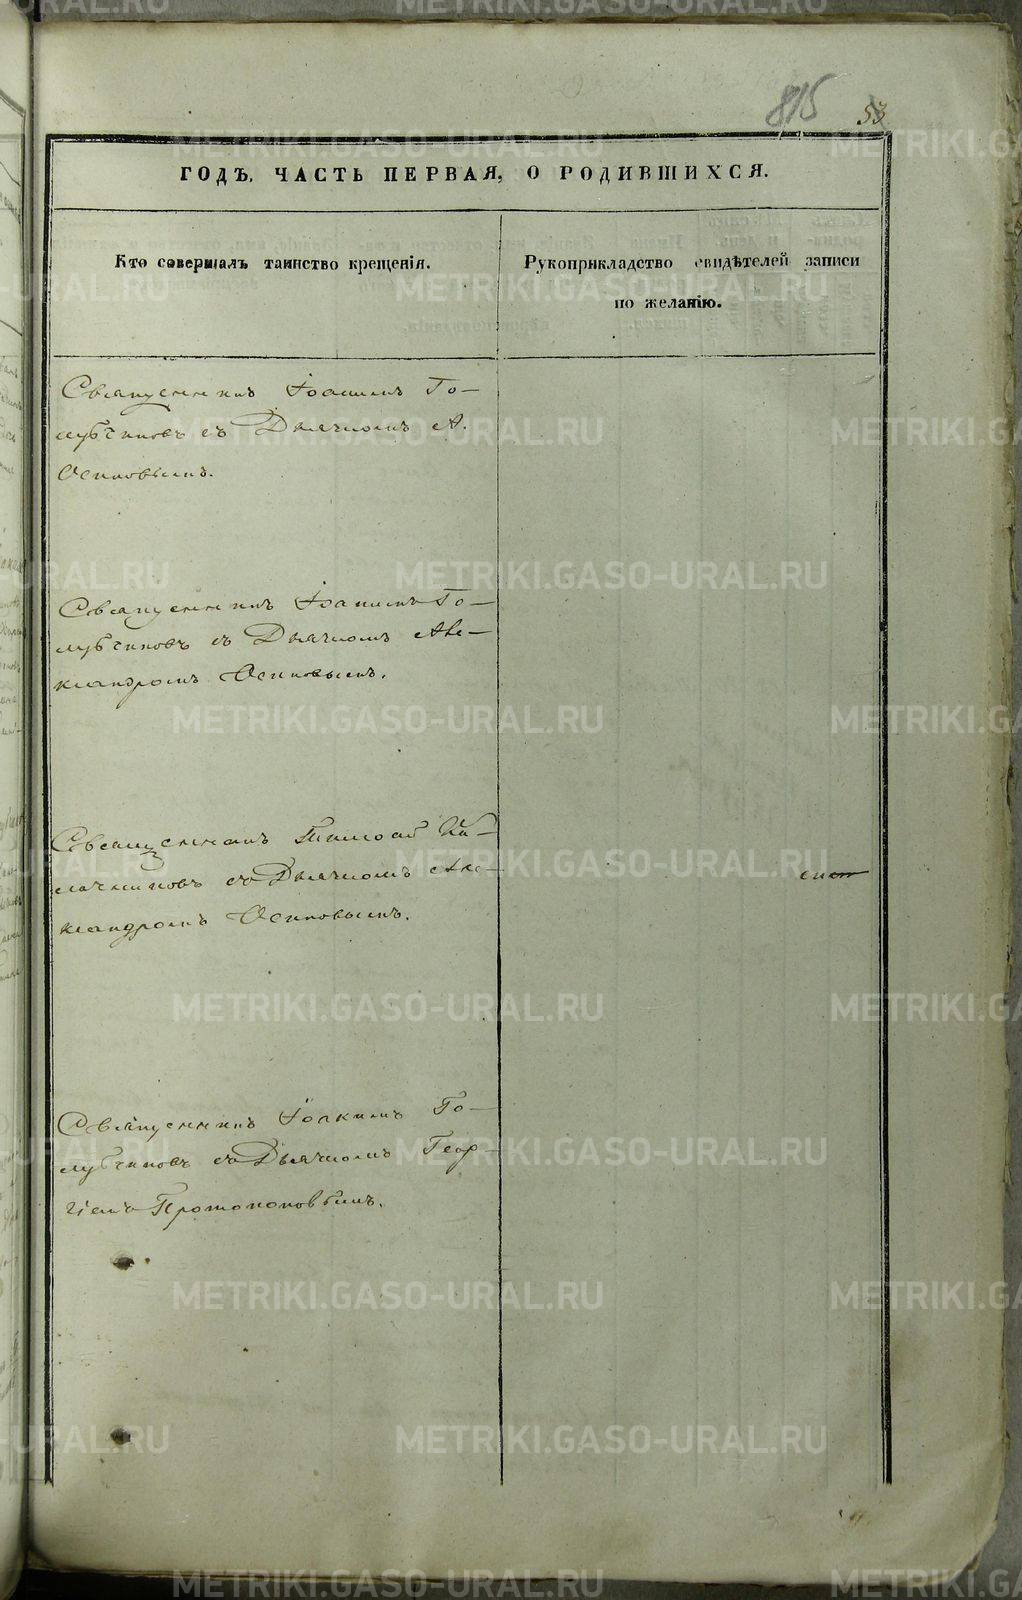 815 53
ГОДЪ. ЧАСТЬ ПЕРВАЯ, О РОДИВШИХСЯ.
Кто совершалъ таинство крещенія.
Рукоприкладство свидѣтелей записи
по желанію.
Священникъ Іоакимъ Го-
лубчиковъ съ Дьячкомъ А.
Осиповымъ.
Священникъ Іоакимъ Го-
лубчиковъ съ Дьячкомъ Але-
ксандромъ Осиповымъ.
Священникъ
съ Дьячкомъ Але-
ксандромъ Осиповымъ.
Священникъ Іоакимъ Го-
лубчиковъ съ Дьячкомъ Геор-
гіемъ Протопоповымъ.
METRIKI.GASO-URAL.RU